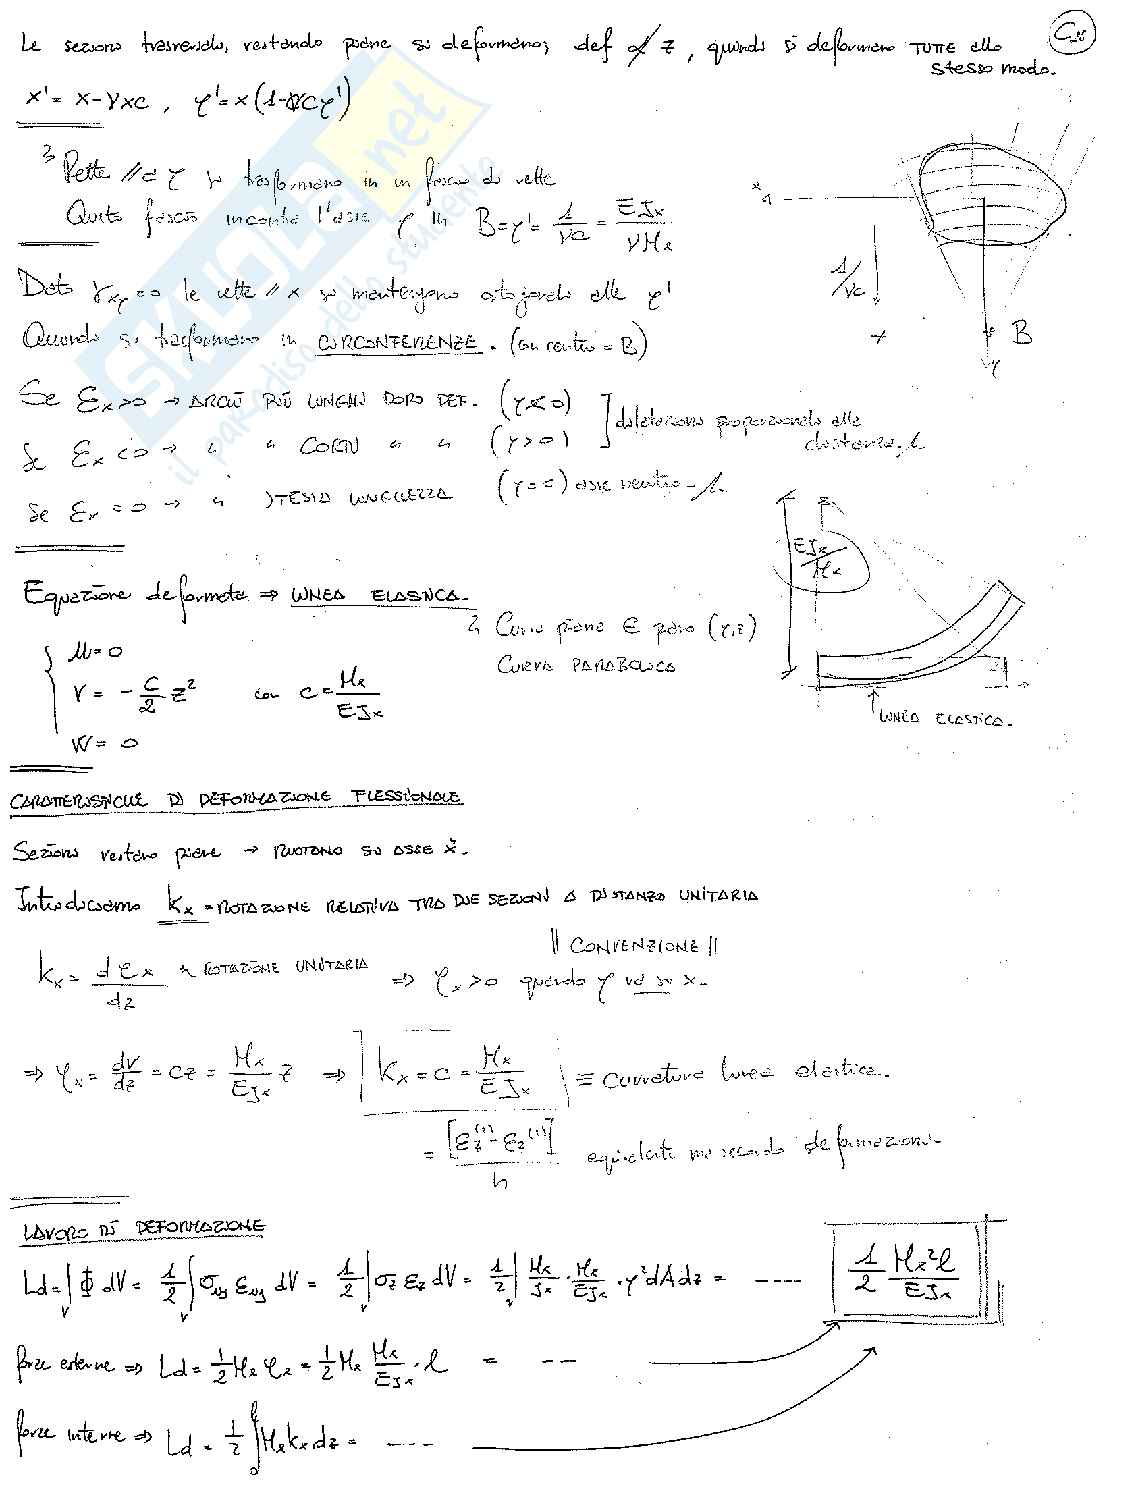 Le sezioni trasversali, restando piane si deformano; def z, quindi si deformano TUTTE allo
stesso modo.
x' = x - γxc , y' = x(1-νcy')
Rette // a y si trasformano in un fascio di rette
Questo fascio incontra l'asse y in B = y' = 1/νc = EJx/νMx
Dato γxy = 0 le rette // x si mantengono ortogonali alle y'
Quindi si trasformano in CIRCONFERENZE. (con centro = B)
1/νc
x
B
y
Se εx > 0 → ARCHI PIÙ LUNGHI DOPO DEF. (y < 0)
Se εx < 0 → " " CORTI " " (y > 0)
dilatazioni proporzionali alla
distanza
Se εx = 0 → " STESSA LUNGHEZZA (y = 0) asse neutro
EJx/Mx
Equazione deformata ⇒ LINEA ELASTICA.
Curva piana ∈ piano (y,z)
CURVA PARABOLICA
u = 0
v = - c/2 z² con c = Mx/EJx
w = 0
LINEA ELASTICA.
CARATTERISTICHE DI DEFORMAZIONE FLESSIONALE
Sezioni restano piane → RUOTANO SU ASSE x.
Introduciamo kx = ROTAZIONE RELATIVA TRA DUE SEZIONI A DISTANZA UNITARIA
|| CONVENZIONE ||
kx = dφx/dz ROTAZIONE UNITARIA ⇒ φx > 0 quando y va su x.
⇒ φx = dv/dz = cz = Mx/EJx z ⇒ kx = c = Mx/EJx ≡ curvatura linea elastica.
= [εz(1) - εz(1)]/h equivalente ma secondo deformazioni.
LAVORO DI DEFORMAZIONE
Ld = ∫v Φ dV = 1/2 ∫v σij εij dV = 1/2 ∫v σz εz dV = 1/2 ∫v Mx/Jx · Mx/EJx · y² dA dz = ---- 1/2 Mx² l/EJx
forze esterne ⇒ Ld = 1/2 Mx φx = 1/2 Mx Mx/EJx · l = --
forze interne ⇒ Ld = 1/2 ∫0 Mx kx dz = ----
SKUOLA.net
il paradiso dello studente